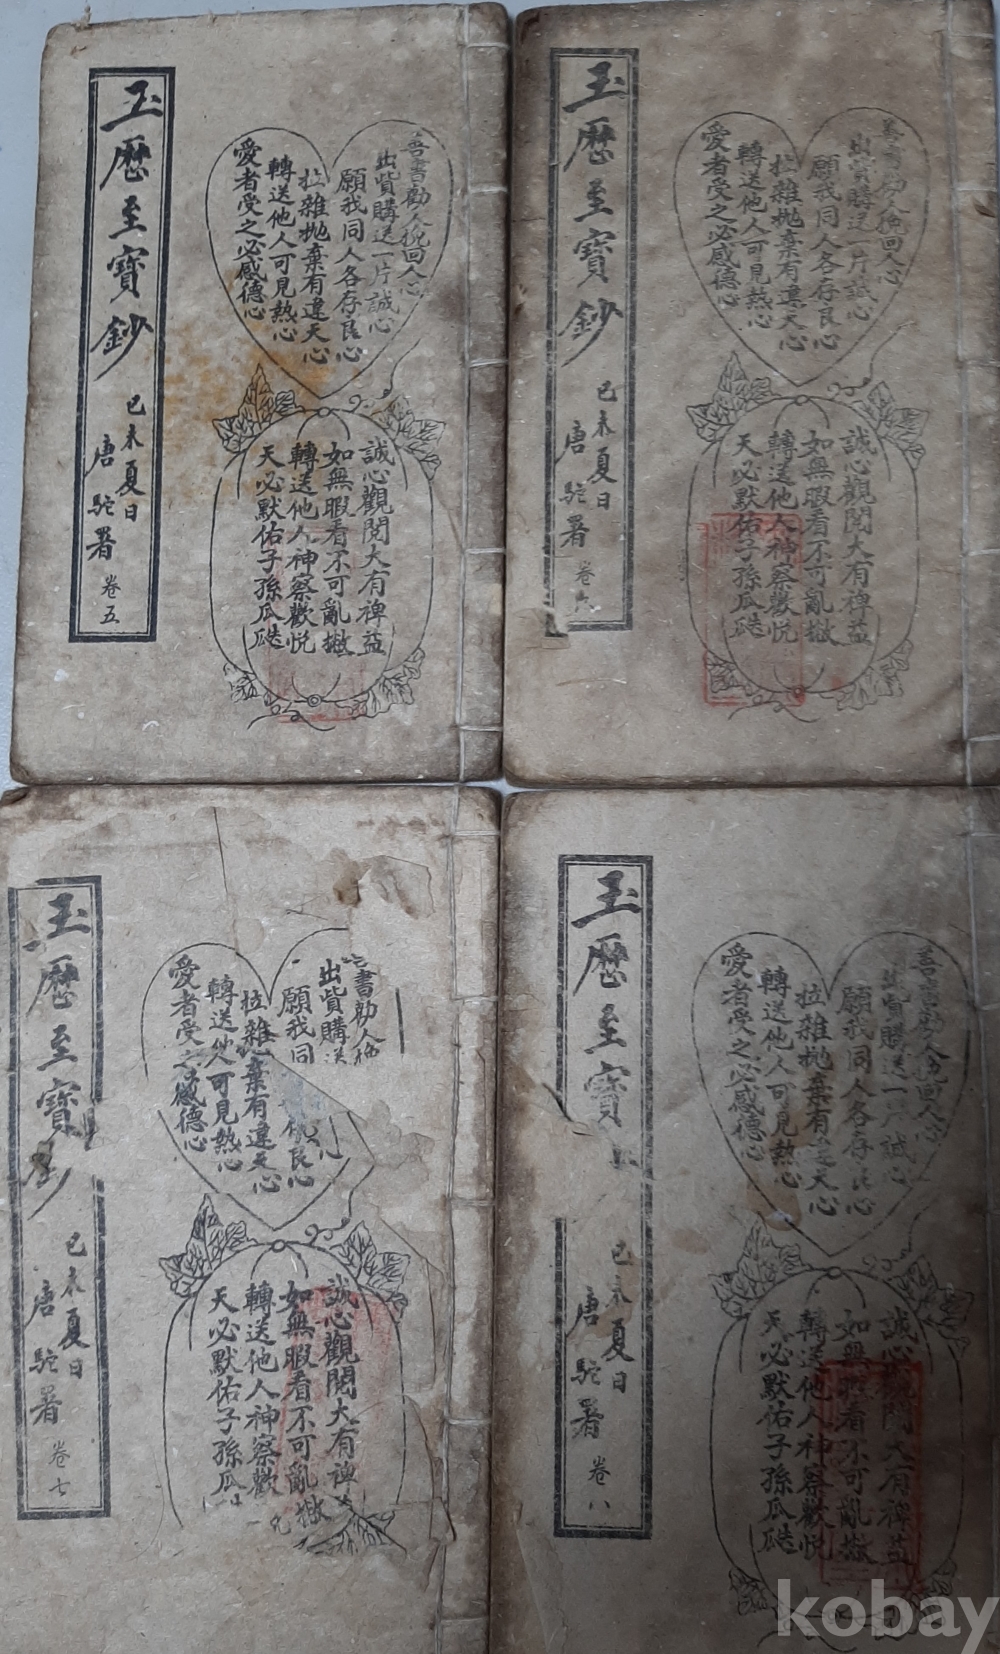 玉歷至寶鈔
己未夏日
唐駝署
卷五
善書勸人挽回人心
出貲購送一片誠心
願我同人各存良心
拉雜抛棄有違天心
轉送他人可見熱心
愛者受之必感德心
誠心觀閱大有裨益
如無暇看不可亂撇
轉送他人神察歡悅
天必默佑子孫瓜瓞
玉歷至寶鈔
己未夏日
唐駝署
卷六
善書勸人挽回人心
出貲購送一片誠心
願我同人各存良心
拉雜抛棄有違天心
轉送他人可見熱心
愛者受之必感德心
誠心觀閱大有裨益
如無暇看不可亂撇
轉送他人神察歡悅
天必默佑子孫瓜瓞
玉歷至寶
己未夏日
唐駝署
卷七
書勸人挽
出貲購送
願我同良心
拉雜抛棄有違天心
轉送他人可見熱心
愛者受之感德心
誠心觀閱大有裨
如無暇看不可亂撇
轉送他人神察歡
天必默佑子孫瓜
玉歷至寶
己未夏日
唐駝署
卷八
善書勸人挽回人心
出貲購送一片誠心
願我同人各存良心
拉雜抛棄有違天心
轉送他人可見熱心
愛者受之必感德心
誠心觀閱大有裨益
如無暇看不可亂撇
轉送他人神察歡悅
天必默佑子孫瓜瓞
kobay